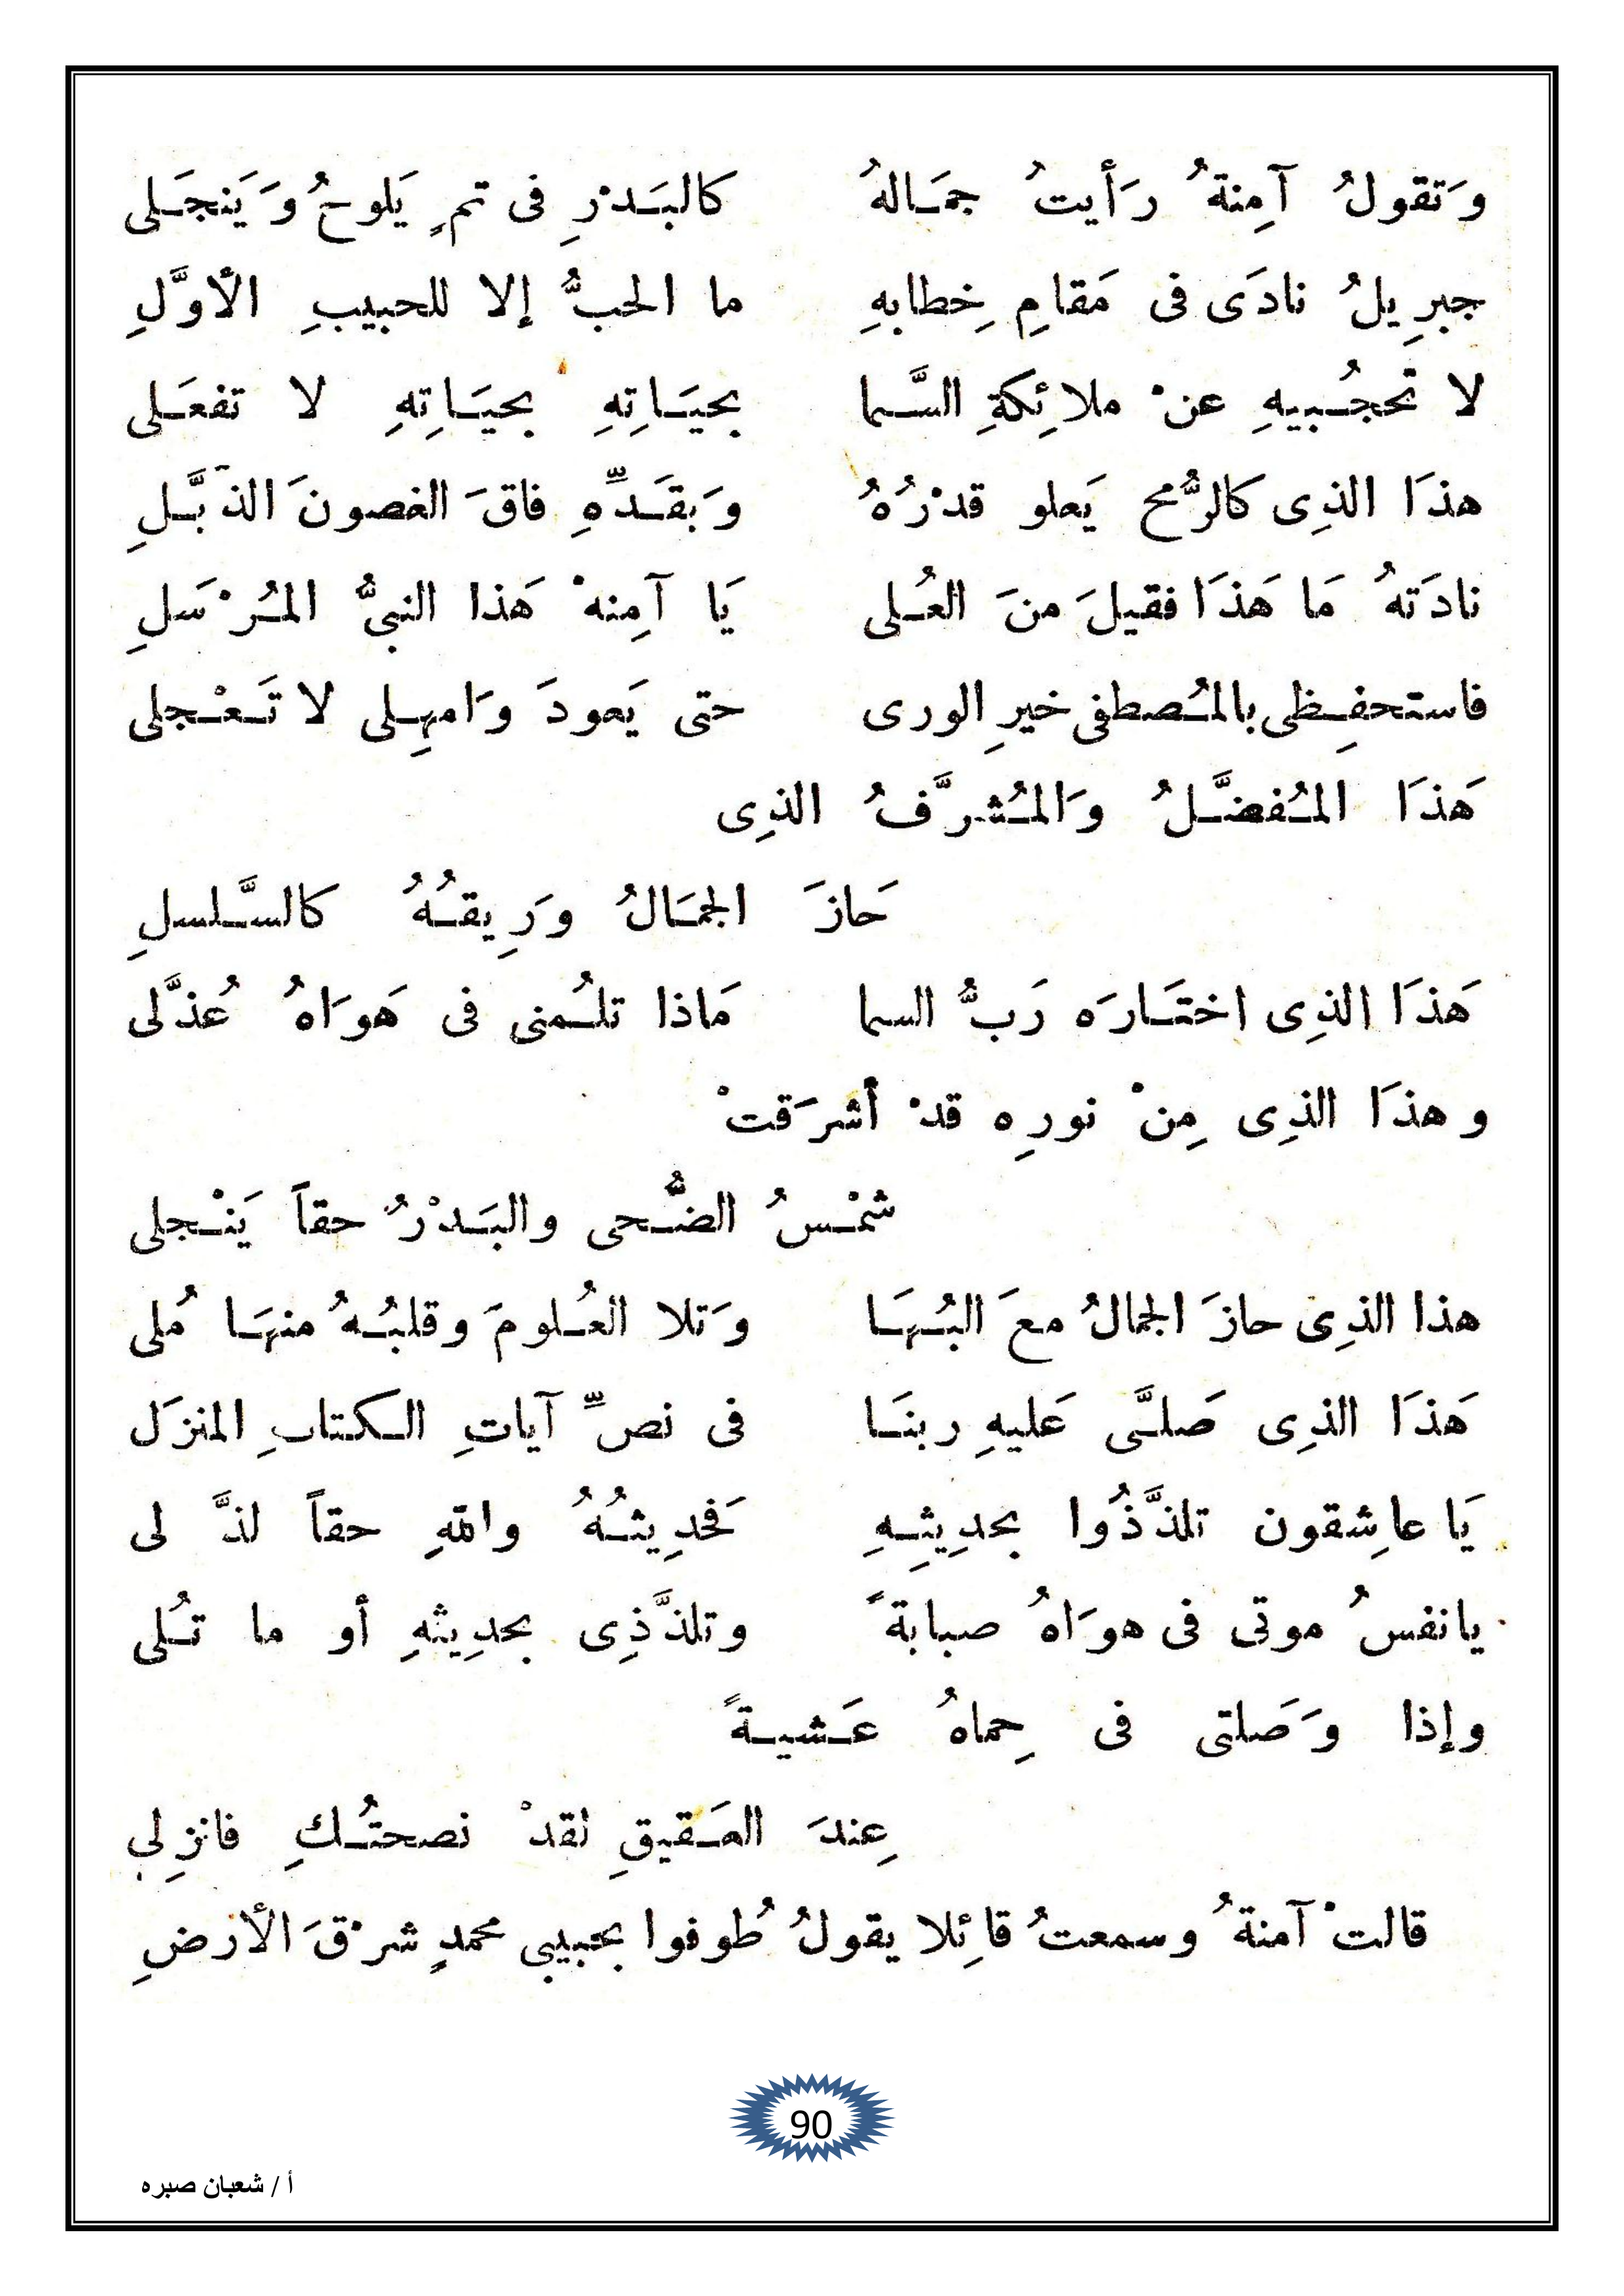 وَتقولُ آمِنةُ رَأيتُ جمَالهُ كالبَدْرِ فى تمٍ يَلوحُ وَيَنجَلى
جبرِيلُ نادَى فى مَقامِ خِطابهِ ما الحبُّ إلا للحبيبِ الأوَّلِ
لا تحجُبيهِ عنْ ملائِكةِ السَّما بحيَاتِهِ بحيَاتِهِ لا تفعَلى
هذَا الذِى كالرُّمح يَعلو قدْرُهُ وَبقَدِّهِ فاقَ الغصونَ الذبَّلِ
نادَتهُ مَا هَذَا فقيلَ منَ العُلى يَا آمِنهْ هَذا النبيُّ المُرْسَلِ
فاستحفِظى بالمُصطفى خيرِ الورى حتى يَعودَ وَامهِلى لا تَعْجلى
هَذَا المُفضَّلُ وَالمُشرَّفُ الذِى
حَازَ الجمَالُ وَرِيقُهُ كالسَّلسلِ
هَذَا الذِى اختَارَه رَبُّ السما مَاذا تلُمنى فى هَوَاهُ عُذَّلى
وهذَا الذِى مِنْ نورِه قدْ أشرَقتْ
شمْسُ الضُّحى والبَدْرُ حقاً يَنْجلى
هذا الذِى حازَ الجمالُ معَ البُهَا وَتلا العُلومَ وقلبُهُ منهَا مُلى
هَذَا الذِى صَلَّى عَليهِ ربنَا فى نصِّ آياتِ الكتابِ المنزَل
يَا عاشِقون تلذَّذُوا بحدِيثِهِ فَحدِيثُهُ واللهِ حقاً لذَّ لى
يانفسُ موتى فى هوَاهُ صبابةً وتلذَّذِى بحدِيثهِ أو ما تُلى
وإذا وَصَلتى فى حِماهُ عَشيةً
عِندَ العَقيقِ لقدْ نصحتُكِ فانزِلى
قالتْ آمنةُ وسمعتُ قائِلا يقولُ طُوفوا بحبيبى محمدٍ شرْقَ الأرضِ
90
أ / شعبان صبره